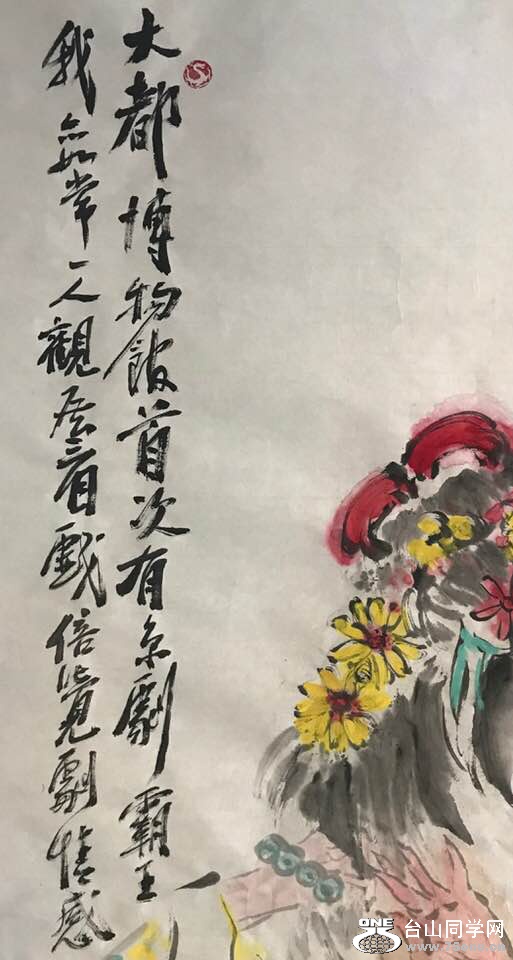 大都博物館首次有京劇霸王
我常一人觀看戲倍覺劇情感
ONE
台山同学网